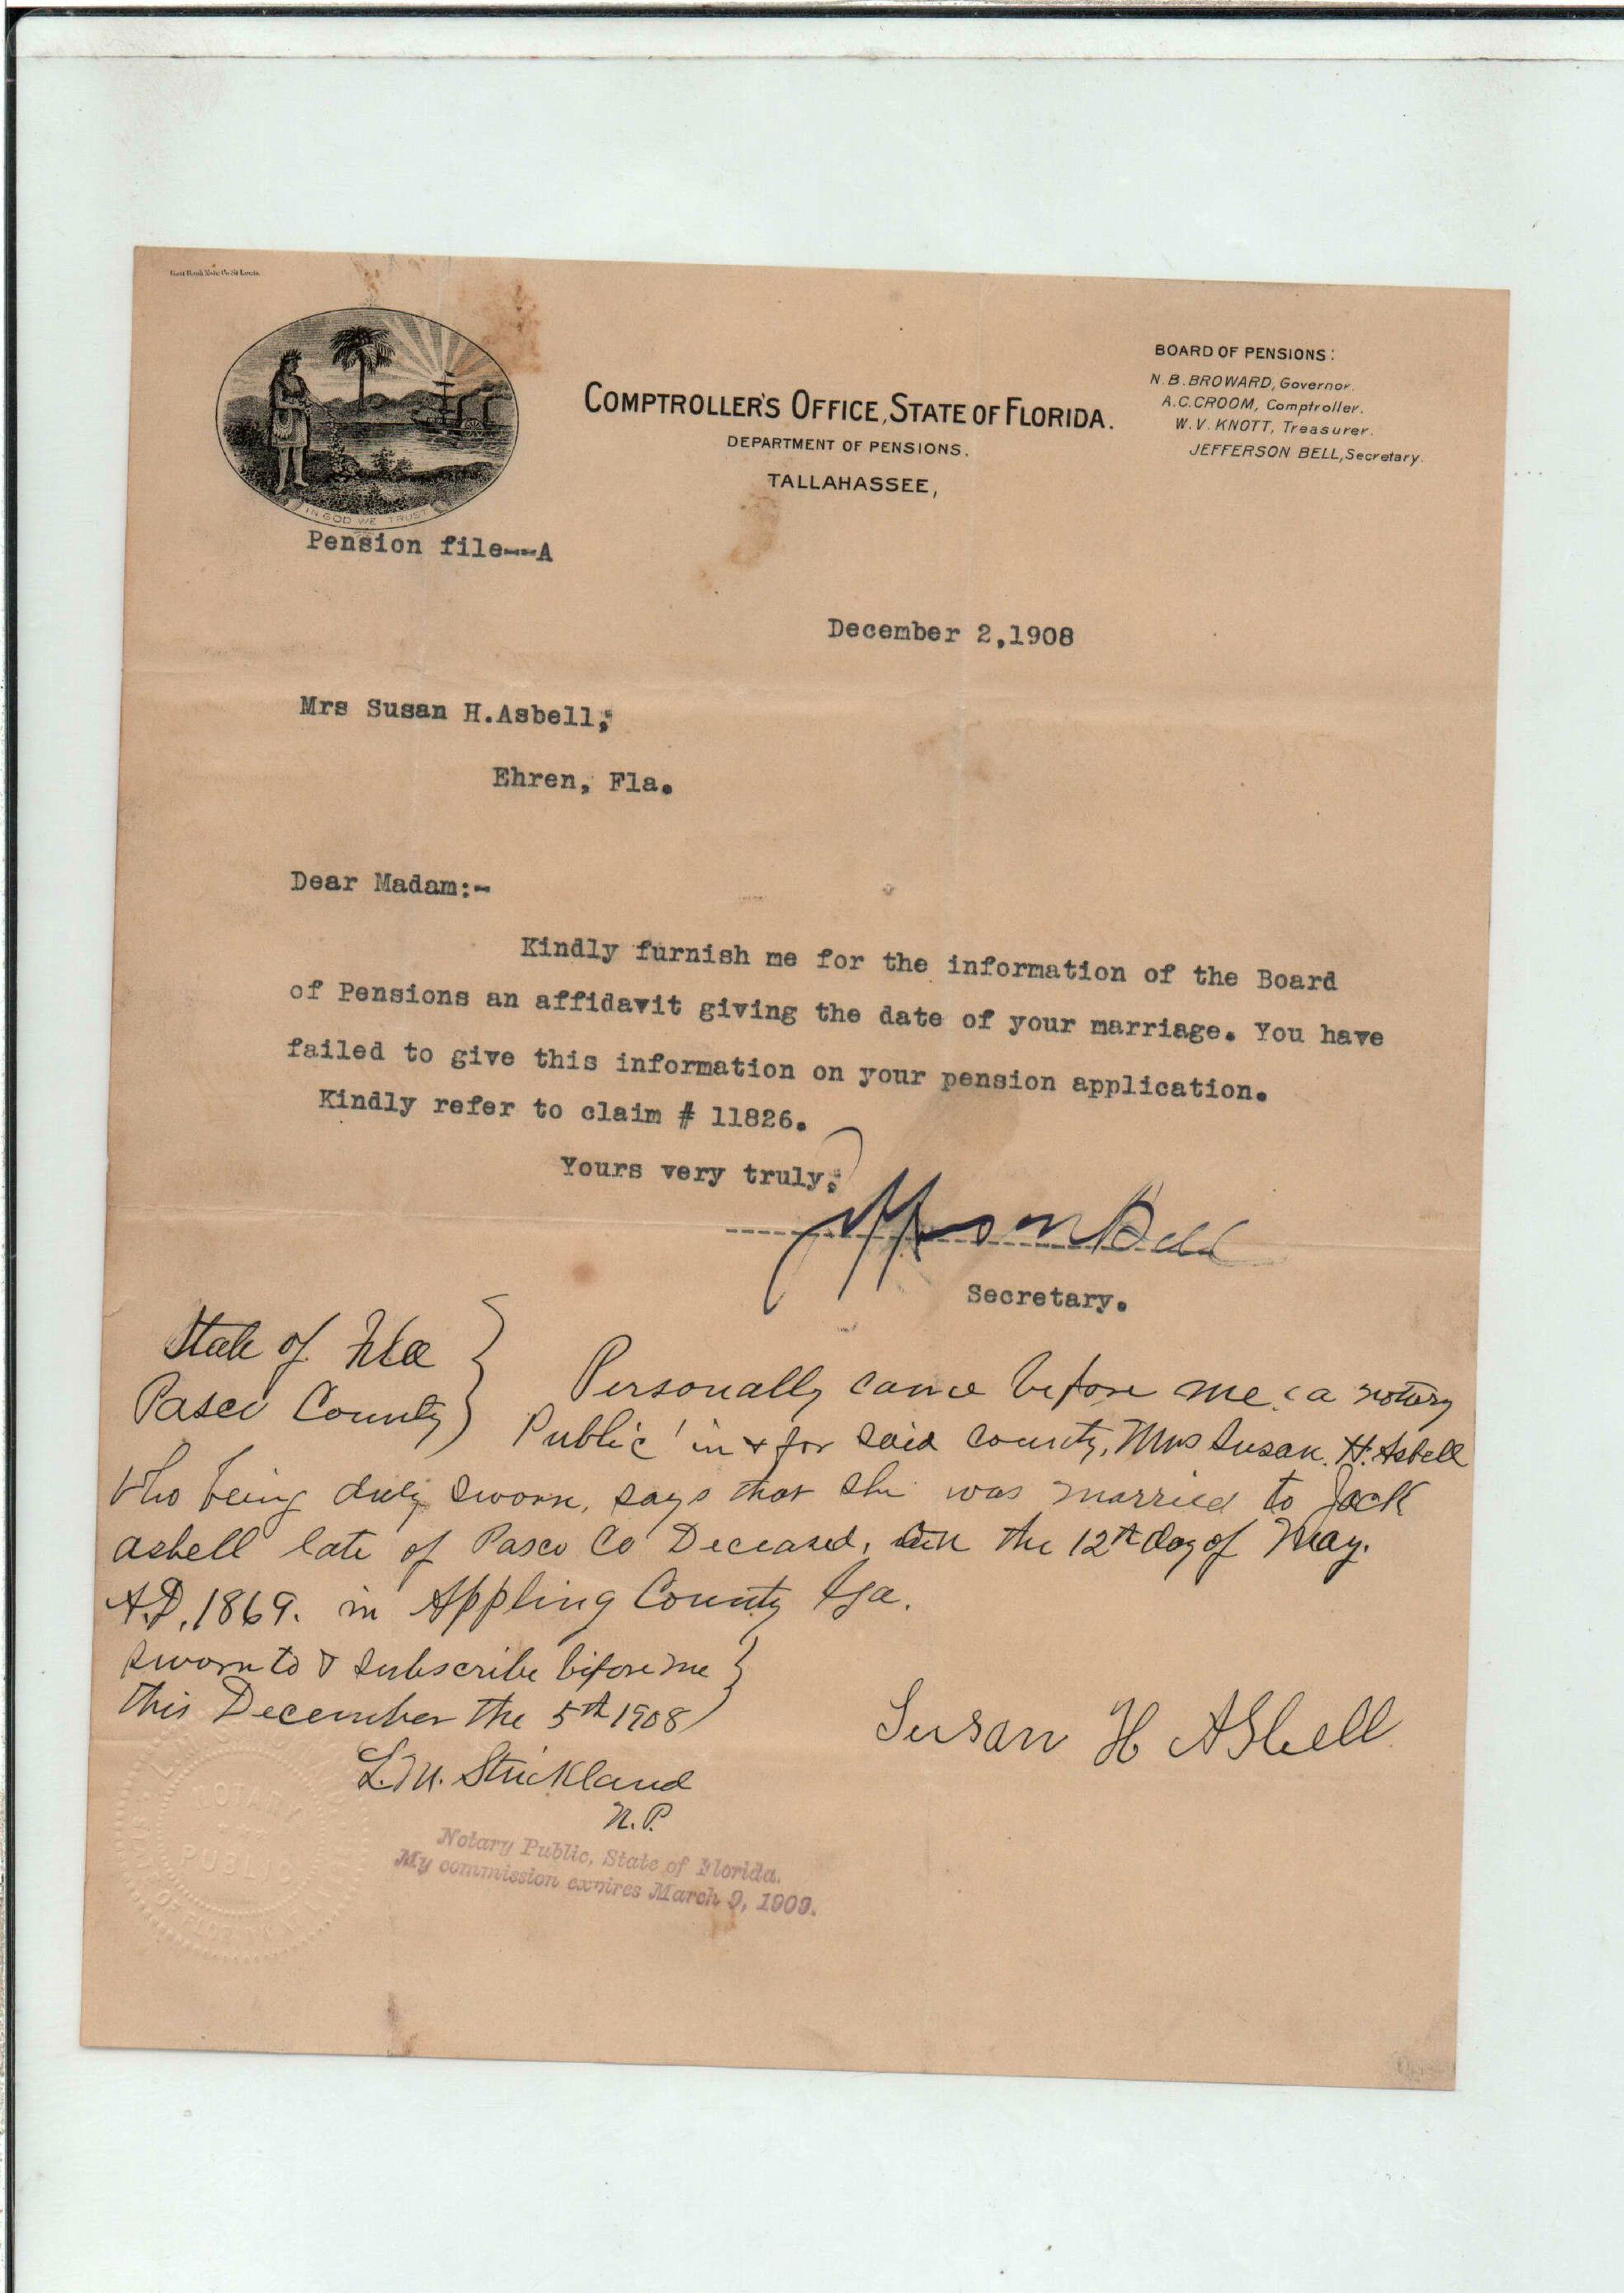 IN GOD WE TRUST
COMPTROLLER'S OFFICE, STATE OF FLORIDA.
DEPARTMENT OF PENSIONS.
TALLAHASSEE,
BOARD OF PENSIONS:
N.B. BROWARD, Governor.
A.C. CROOM, Comptroller.
W.V. KNOTT, Treasurer.
JEFFERSON BELL, Secretary.
Pension file---A
December 2,1908
Mrs Susan H.Asbell,
Ehren, Fla.
Dear Madam:-
Kindly furnish me for the information of the Board
of Pensions an affidavit giving the date of your marriage. You have
failed to give this information on your pension application.
Kindly refer to claim # 11826.
Yours very truly,
Jefferson Bell
Secretary.
State of Fla
Pasco County
Personally came before me, a notary
Public in & for said County, Mrs Susan. H. Asbell
Who being duly sworn, says that she was married to Jack
asbell late of Pasco Co Deceased, on the 12th day of May.
A.D. 1869. in Appling County Ga.
Sworn to & Subscribe before me
this December the 5th 1908
L.M. Strickland
N.P.
Susan H ASbell
Notary Public, State of Florida.
My commission expires March 9, 1909.
NOTARY
PUBLIC